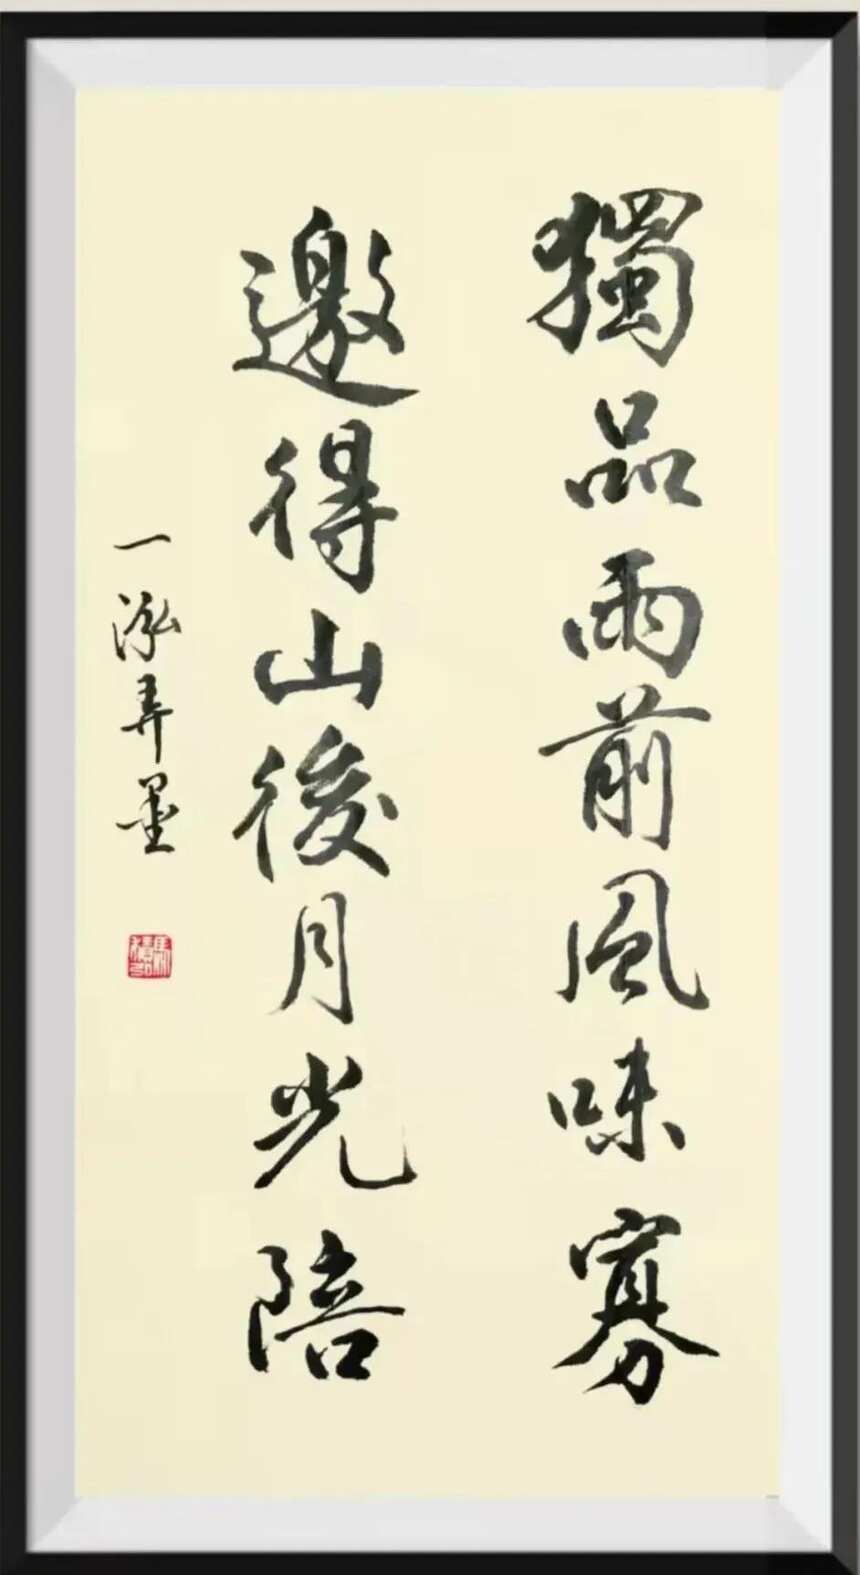 獨品雨前風味寡
邀得山後月光陪
一泓弄墨